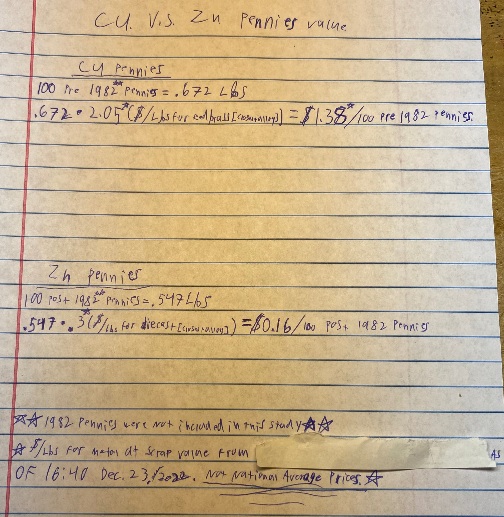 CU. V.S. Zn Pennies value
CU Pennies
100 Pre 1982** Pennies = .672 Lbs
.672 • 2.05* ($/Lbs for red brass [closest alloy]) = $1.38*/100 Pre 1982 Pennies.
Zn Pennies
100 post 1982** Pennies = .547 Lbs
.547 • .3* ($/Lbs for diecast [closest alloy]) = $0.16/100 post 1982 Pennies
☆☆ 1982 Pennies were not included in this study ☆☆
☆ $/Lbs for metal at scrap value from AS
OF 16:40 Dec. 23, 2022. Not National Average Prices. ☆